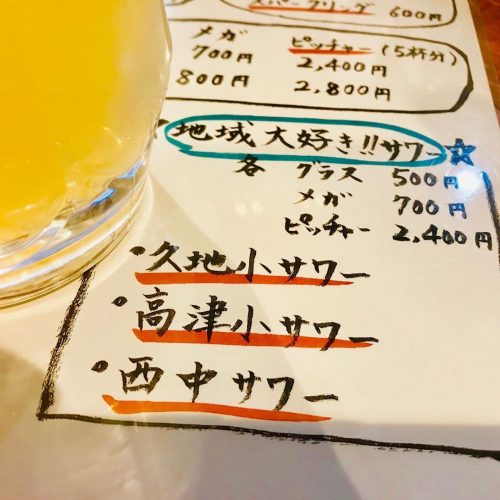 スパークリング 600円
メガ ピッチャー(5杯分)
700円 2,400円
800円 2,800円
地域大好き!!サワー☆
各 グラス 500円
メガ 700円
ピッチャー 2,400円
・久地小サワー
・高津小サワー
・西中サワー